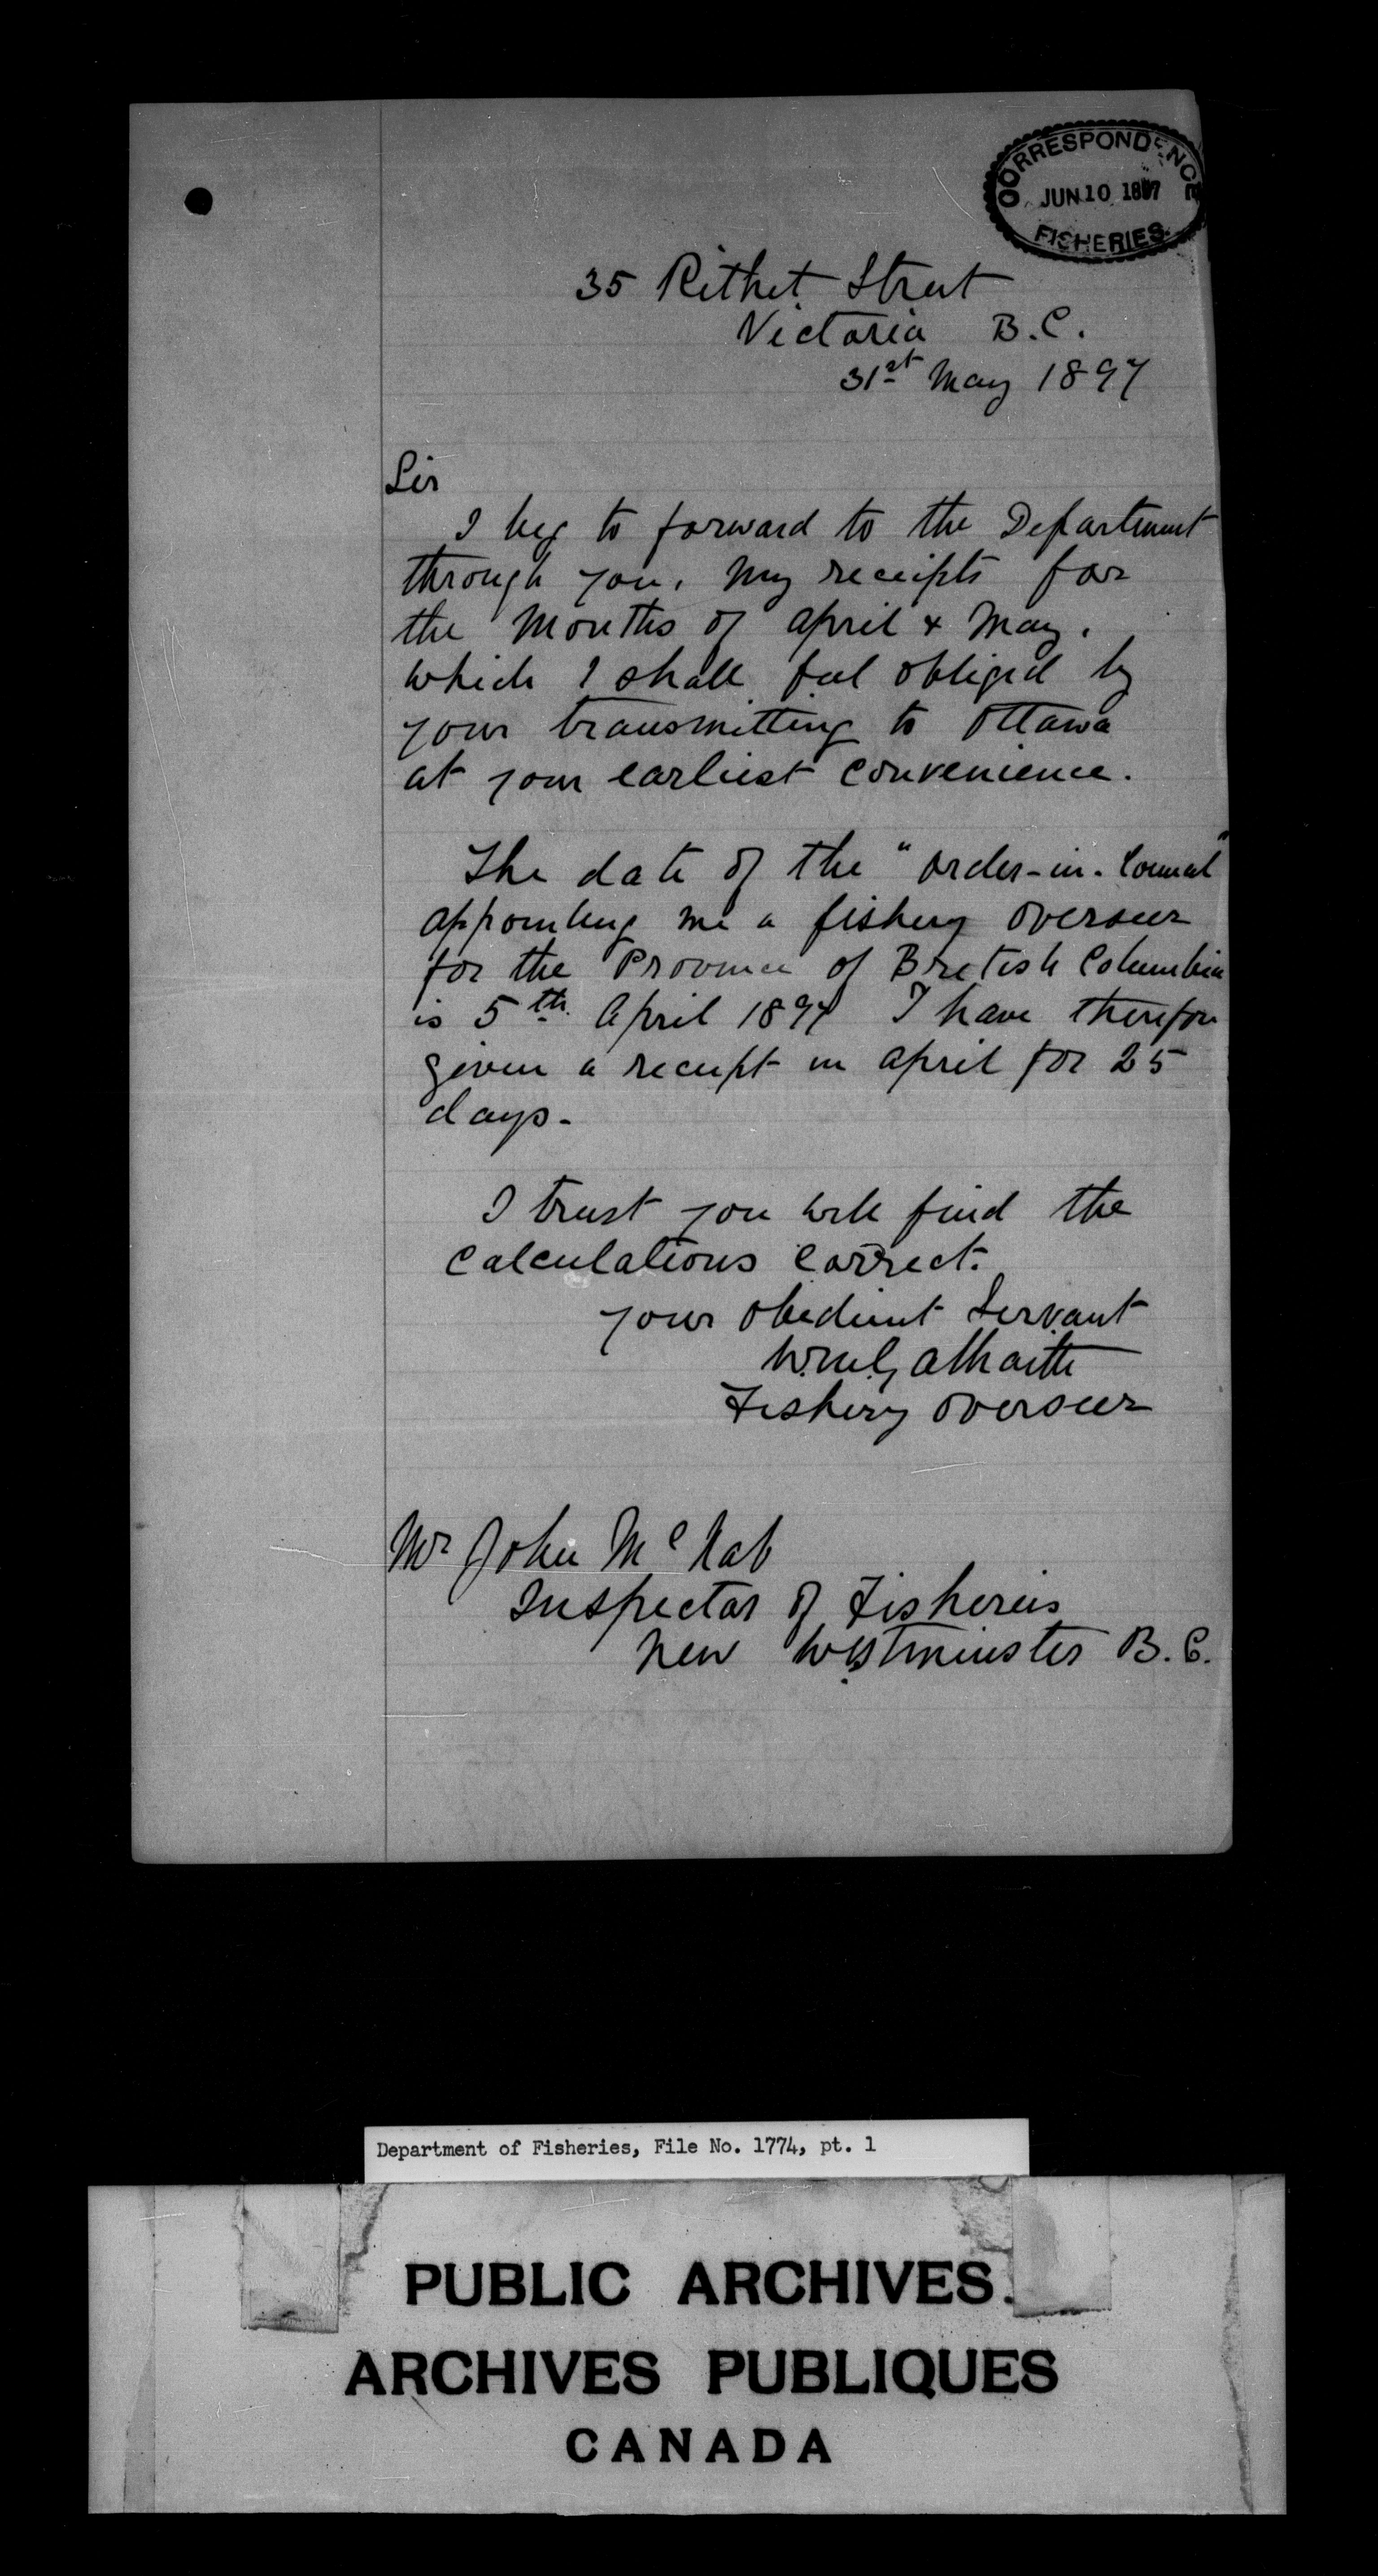 CORRESPONDENCE
JUN 10 1897
FISHERIES.
35 Rithet Street
Victoria B.C.
31st May 1897
Sir
I beg to forward to the Department
through you, my receipts for
the months of April & May.
which I shall feel obliged by
your transmitting to Ottawa
at your earliest convenience.
The date of the "order-in-Council"
appointing me a fishery overseer
for the Province of British Columbia
is 5th April 1897 I have therefore
given a receipt in April for 25
days.
I trust you will find the
calculations correct.
your obedient Servant
Wm. Galbraith
Fishery overseer
Mr John McNab
Inspector of Fisheries
New Westminster B.C.
Department of Fisheries, File No. 1774, pt. 1
PUBLIC ARCHIVES
ARCHIVES PUBLIQUES
CANADA